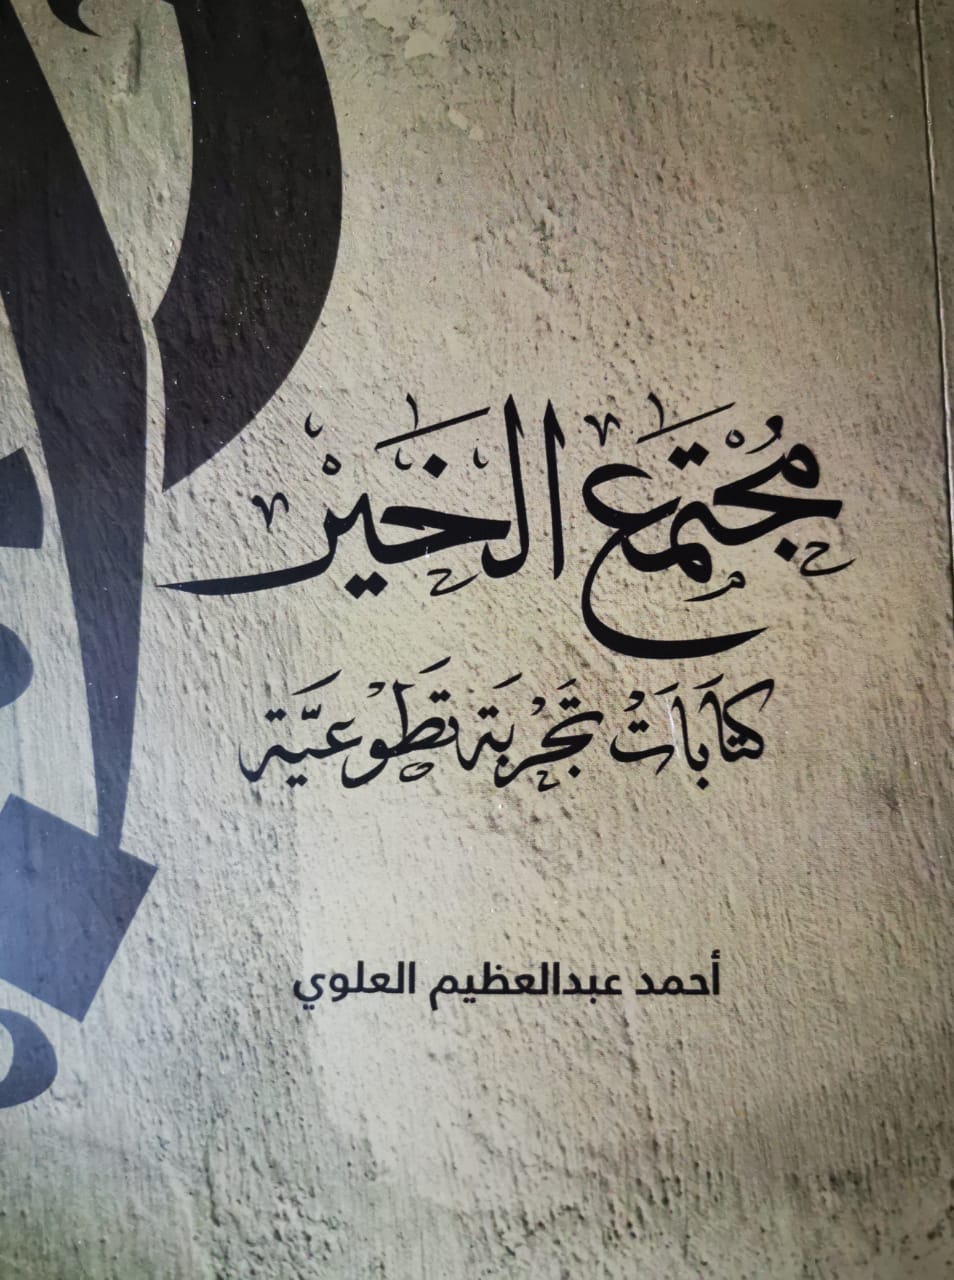 مُجْتَمَع الخَيْر
كِتَابَاتْ تَجْرِبَة تَطَوْعيَّة
أحمد عبدالعظيم العلوي